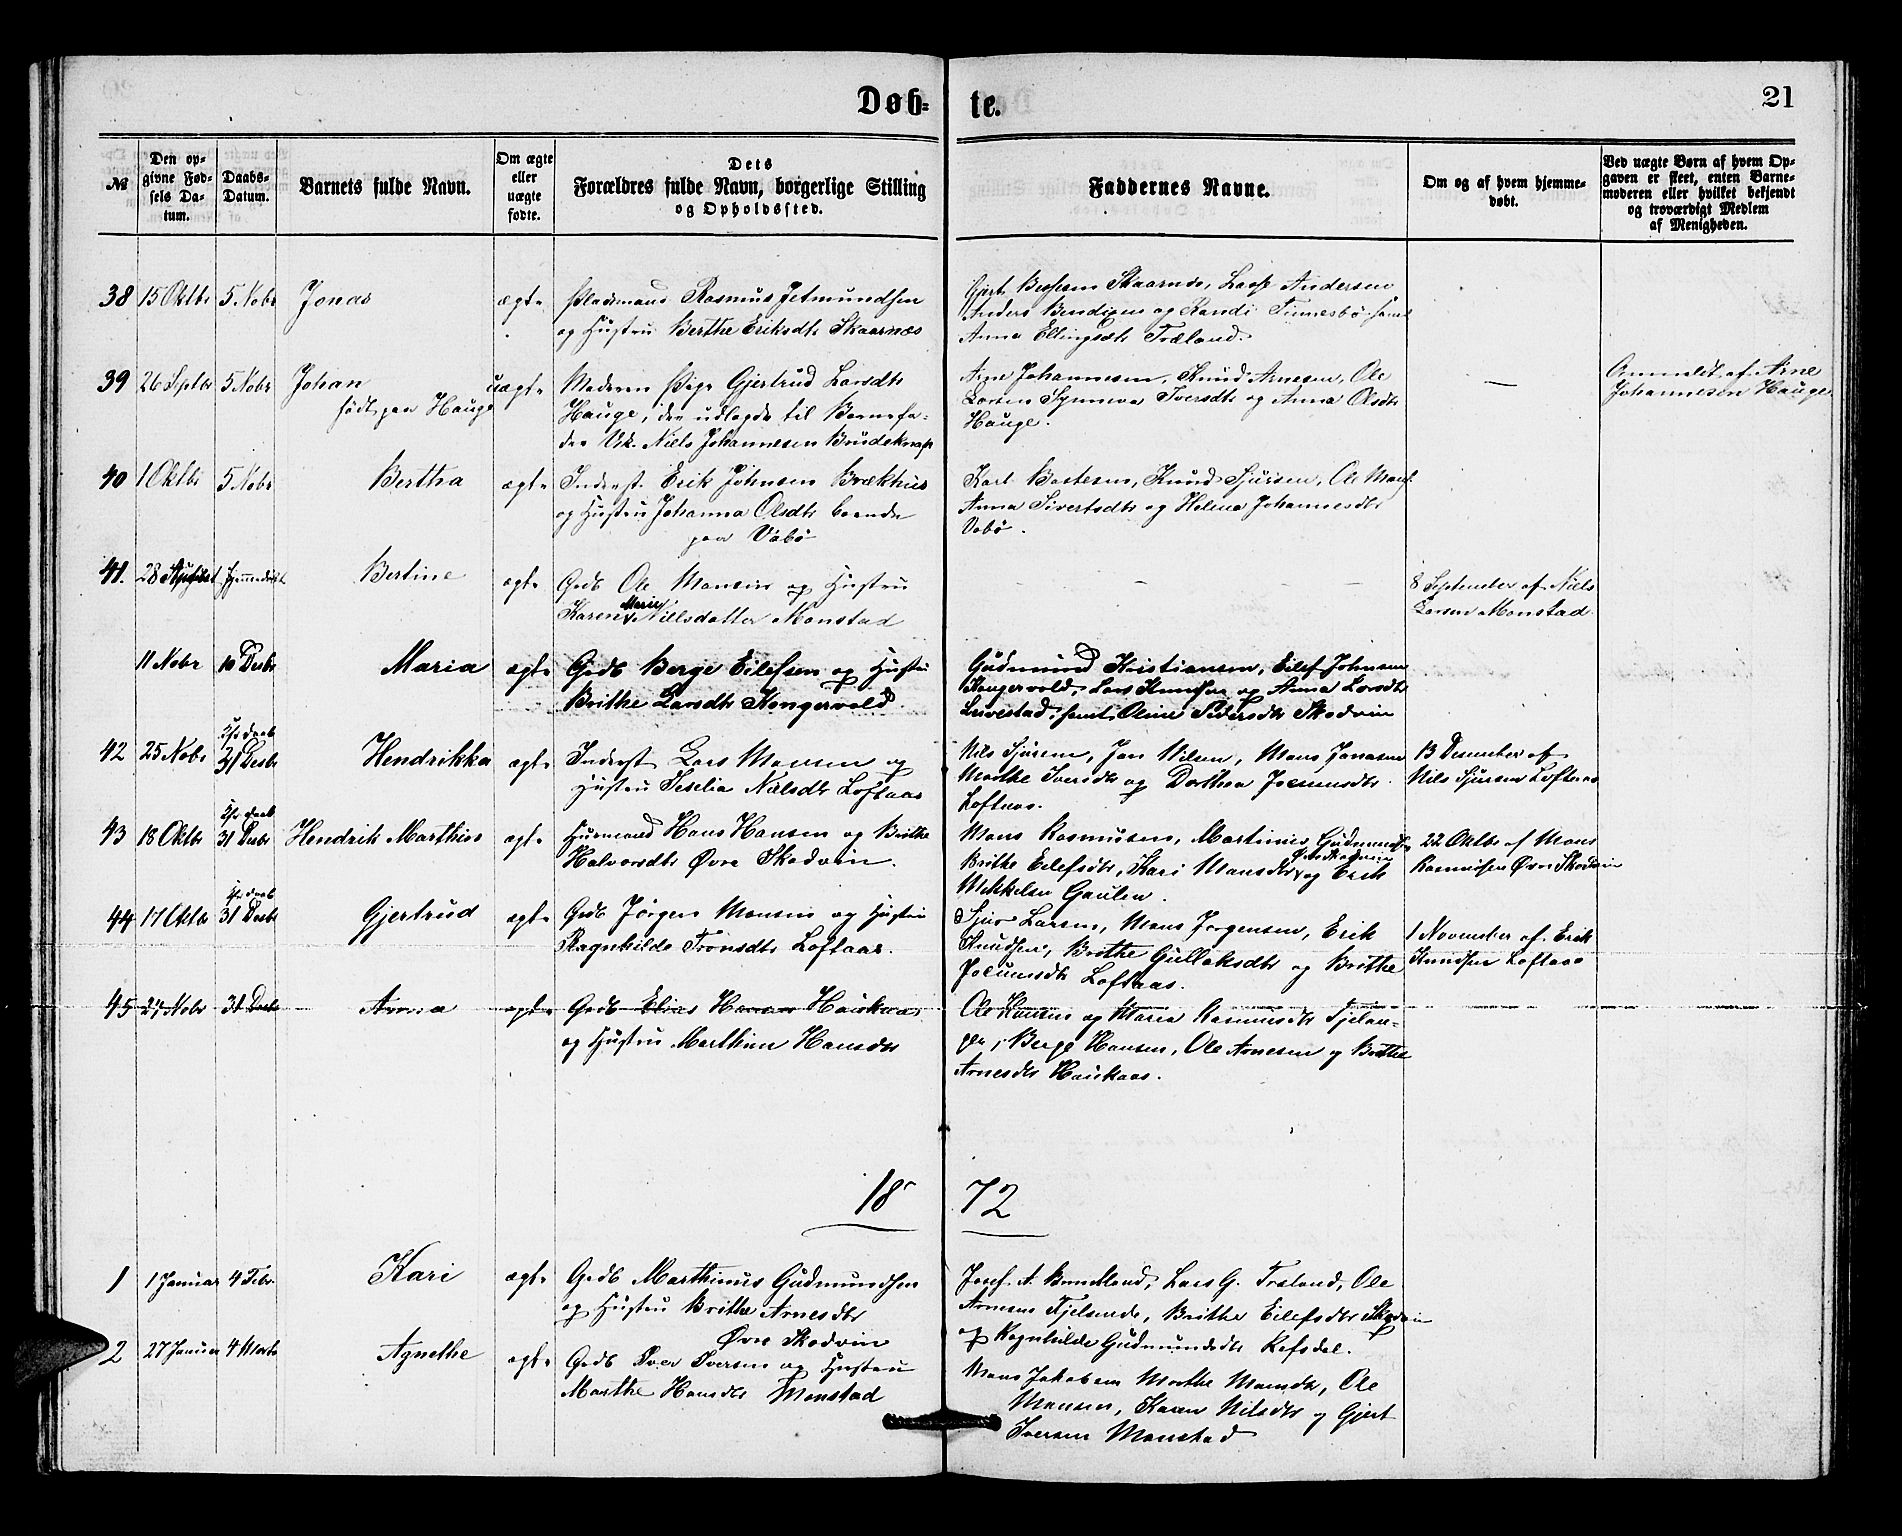 Døb-
te.
21
№
Den opgivne Fødsels Datum.
Daabs-Datum.
Barnets fulde Navn.
Om ægte eller uægte fødte.
Dets Forældres fulde Navn, borgerlige Stilling og Opholdssted.
Faddernes Navne.
Om og af hvem hjemmedøbt.
Ved uægte Børn af hvem Opgaven er skeet, enten Barnemoderen eller hvilket bekjendt og troværdigt Medlem af Menigheden.
38 15 Oktbr 5 Nobr Jonas ægte Pladsmand Rasmus Jetmundsen
og Hustru Berthe Eriksdtr Skaarnæs
Andersen
Anders Bendixen og Randi Tinnesbø samt
Anna Ellingsdtr Træland.
39 26 Septbr 5 Nobr Johan
født paa Hauge
uægte Moderen Pige Gjertrud Larsdtr
Hauge, der udlagde til Barnefader
Uk. Niels Johannesen Brudeknap
Arne Johannesen, Knud Arnesen, Ole
Larsen Synneva Iversdtr og Anna Olsdtr
Hauge.
Anmeldt af Arne
Johannesen Hauge
40 1 Oktbr 5 Nobr Bertha ægte Inderst Erik Johnsen Brækhus
og Hustru Johanna Olsdtr boende
paa Vabø
Karl Bastesen, Knud Sjursen, Ole
Anna Sivertsdtr og Helena Johannesdtr
Vabø.
41. 28 hjemmedøbt Bertine ægte Grdb Ole Monsen og Hustru
Karen Marie Nielsdatter Monstad
8 September af Niels
Larsen Monstad
11 Nobr 10 Desbr Maria ægte Grdb Berge Eilefsen og Hustru
Brithe Larsdtr Kongervold
Gudmund Kristiansen, Eilef Johnsen
Kongervold, Lars Knudsen og Anna Larsdtr
Leivestad, samt Oline Pedersdtr Skodvin
42 25 Nobr 31 Desbr Hendrikka ægte Inderst Lars Monsen og
Hustru Sesilia Nielsdtr Loftaas
Nils Sjursen, Jan Nilsen, Mons Jonasen
Marthe Iversdtr og Dorthea Joensdtr
Loftaas.
13 Desember af
Nils Sjursen Loftaas
43 18 Oktbr 31 Desbr Hendrik Marthin ægte Husmand Hans Hansen og Brithe
Halvorsdtr Øvre Skodvin.
Mons Rasmusen, Martinus Gudmundsen
Brithe Eilefsdtr, Kari Monsdtr Øvre Skodvin og Erik
Mikkelsen Gaulen.
22 Oktbr af Mons
Rasmusen Øvre Skodvin
44 17 Oktbr 31 Desbr Gjertrud ægte Grdb Jørgen Monsen og Hustru
Ragnhilde Tronsdtr Loftaas.
Sjur Larsen, Mons Jørgensen, Erik
Knudsen, Brithe Gullaksdtr og Brithe
Loftaas.
1 November af Erik
Knudsen Loftaas
45 27 Nobr 31 Desbr Anna ægte Grdb Elias Hansen Haukaas
og Hustru Marthine Hansdtr
Ole Hansen og Maria Rasmusdtr Fjelanger,
Berge Hansen, Ole Arnesen og Brithe
Arnesdtr Haukaas.
18 72
1 1 Januar 4 Febr. Kari ægte Grdb Marthinus Gudmundsen
og Hustru Brithe Arnesdtr
Øvre Skodvin
Josef A. Lars G. Træland, Ole
Arnesen Fjelsende, Brithe Eilefsdtr Skodvin
og Ragnhilde Gudmundsdtr Refsdal.
2 27 Januar 4 Marts Agnethe ægte Grdb Iver Iversen og Hustru
Marthe Hansdtr Monstad
Mons Jakobsen Marthe Monsdtr, Ole
Monsen, Karen Nilsdtr og Gjert
Iversen Monstad